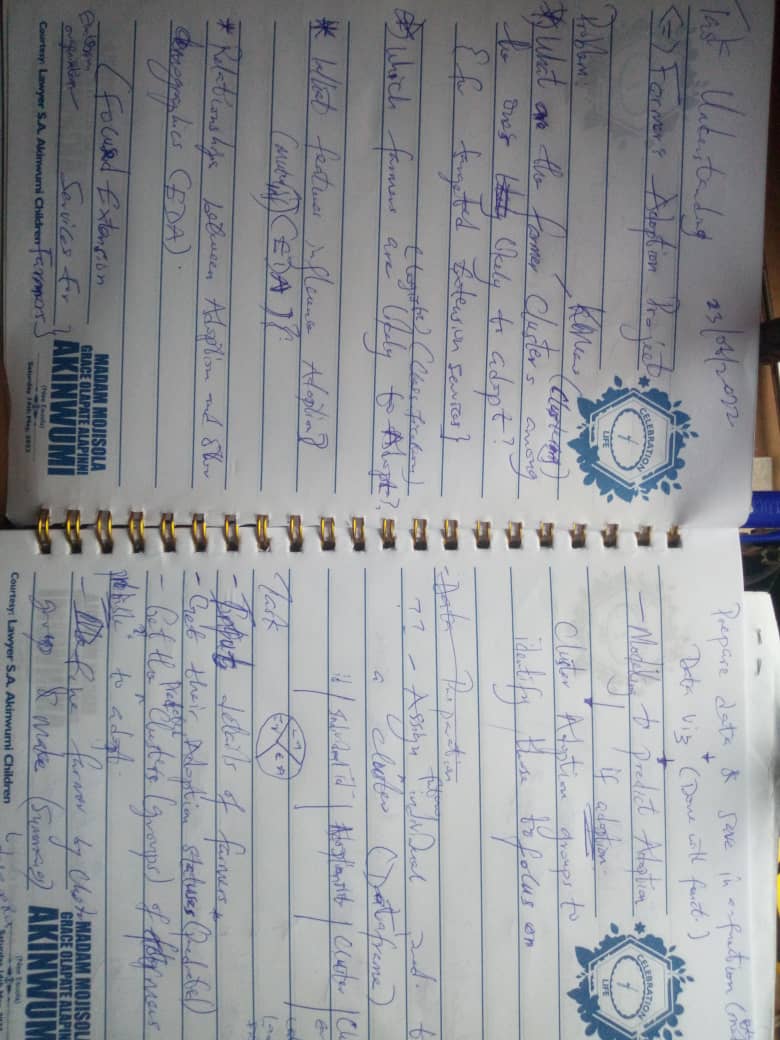 Task Understanding 23/04/2022
(-) Farmers Adoption Project
Problem:
KMeans (Clustering)
*) What are the farmer Clusters among
the ones likely to adopt?
{for targeted Extension Services}
(Logistic) (Classification)
*) Which farmers are likely to Adopt?
* What features influence Adoption?
(EDA)?
* Relationships between Adoption and
Demographics (EDA).
(Focused Extension
Services for
Farmers}
CELEBRATION
LIFE
MADAM MOJISOLA
GRACE OLAPATE ALAPINNI
AKINWUMI
(Nee Fasola)
Saturday 7th May, 2022
Courtesy: Lawyer S.A. Akinwumi Children
Prepare data & save in a function
Data viz (Done with funct.)
- Modelling to predict Adoption
if adoption
Cluster Adoption groups to
identify those to focus on
- Data Preparation
?? - Assign individual
a cluster (Dataframe)
id / / / Cluster /
Task
- details of farmers
- Get their Adoption statuses (model)
- Get the Clusters (groups) of farmers
to adopt.
farmer by
group & make
CELEBRATION
LIFE
MADAM MOJISOL
GRACE OLAPATE ALAPIN
AKINWUM
Courtesy: Lawyer S.A. Akinwumi Children